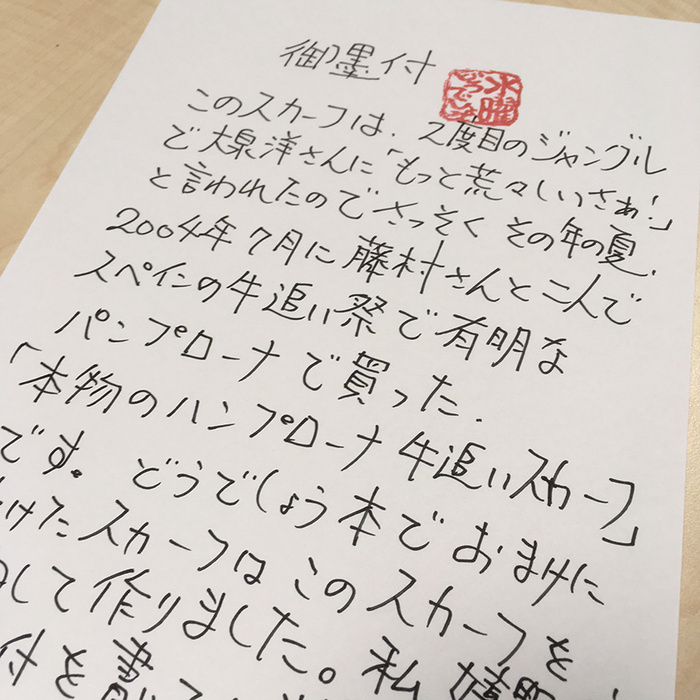 御墨付
水曜
どうでしょう
このスカーフは、2度目のジャングル
で大泉洋さんに「もっと荒々しいさぁ!」
と言われたのでさっそくその年の夏、
2004年7月に藤村さんと二人で
スペインの牛追い祭で有明な
パンプローナで買った、
「本物のハンプローナ牛追いスカーフ」
です。どうでしょう本でおまけに
けたスカーフはこのスカーフを
して作りました。私
付を書